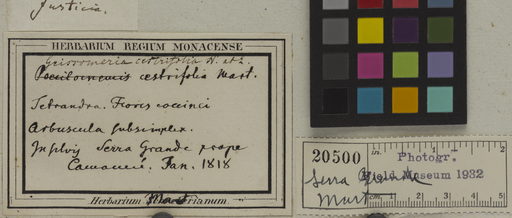 Justicia.
HERBARIUM REGIUM MONACENSE
cestrifolia N. et
cestrifolia Mart.
Tetrandra. Flores coccinei
Arbuscula subsimplex.
In sylvis Serra Grande prope
Camamú. Jan. 1818
Herbarium Martianum
20500
Photogr.
Field Museum 1932
Serra Grande
Mart
in
1 2 3 4 5